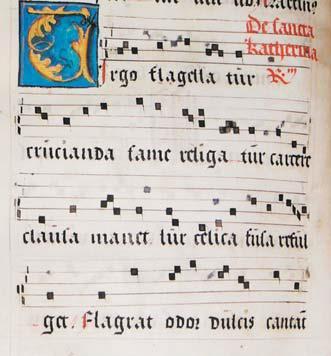 De sancta
Katherina
Virgo flagella tur R
crucianda fame religa tur carcere
clausa manet lux celica fusa reful
get. Flagrat odor dulcis cantant